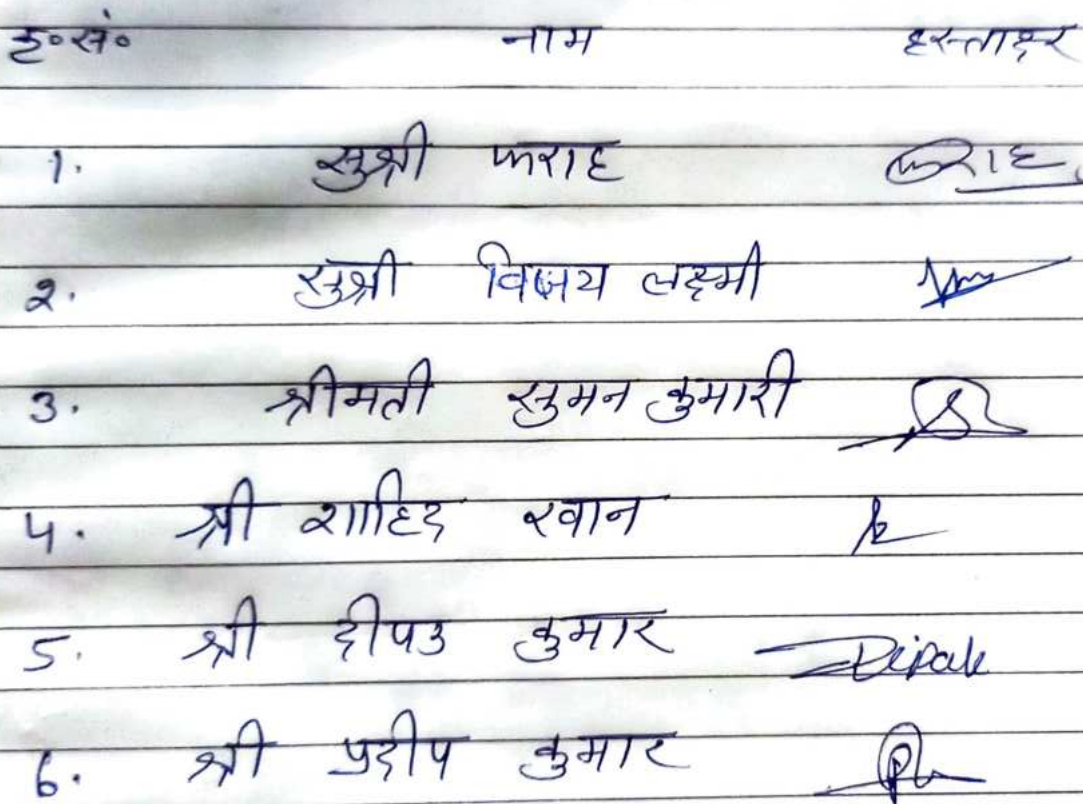 क्र०सं० नाम हस्ताक्षर
1. सुश्री फराह फराह
2. सुश्री विजय लक्ष्मी
3. श्रीमती सुमन कुमारी
4. श्री शाहिद खान
5. श्री दीपक कुमार Dipak
6. श्री प्रदीप कुमार